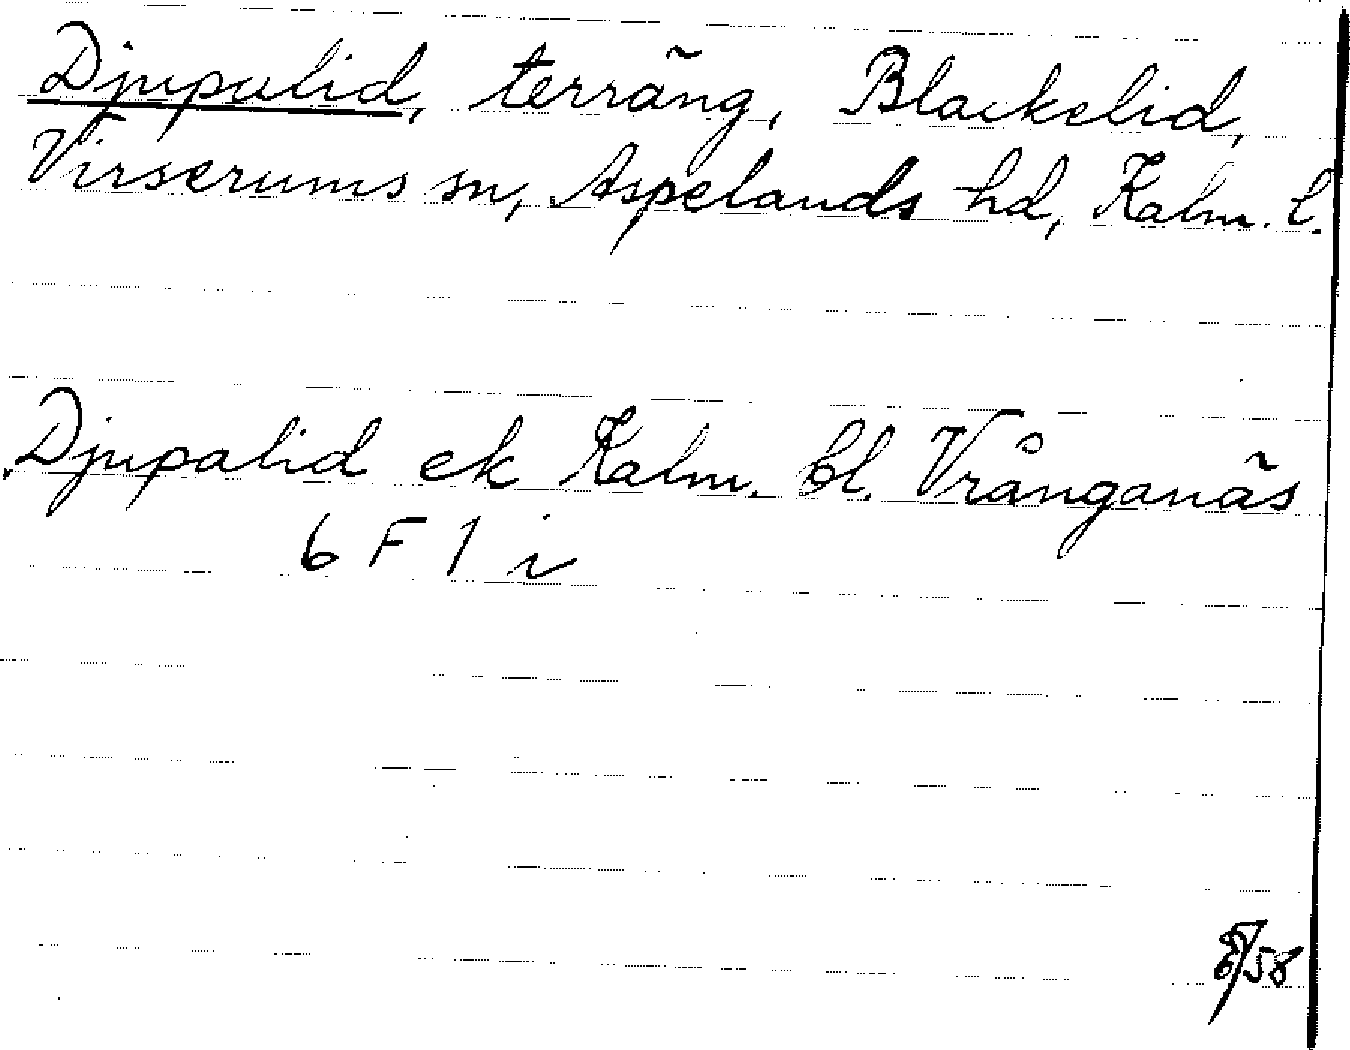 Djupalid, terräng, Blackelid,
Virserums sn, Aspelands hd, Kalm. l.
Djupalid ek Kalm. bl. Vrånganäs
6 F 1 i